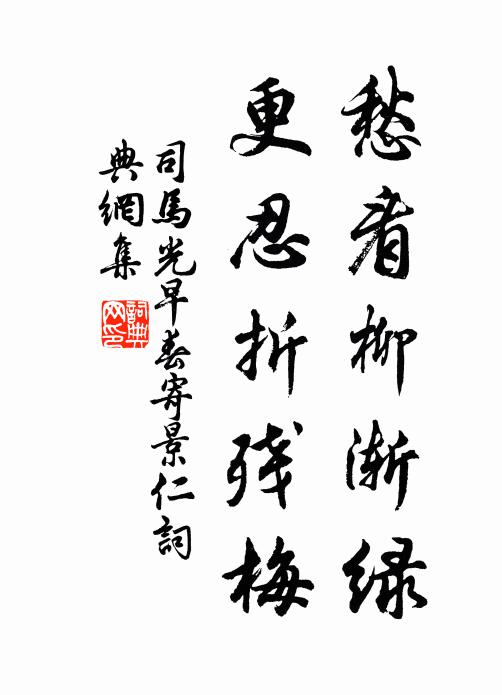 愁看柳渐绿
更忍折残梅
司馬光早春寄景仁詞
典網集
詞典网印